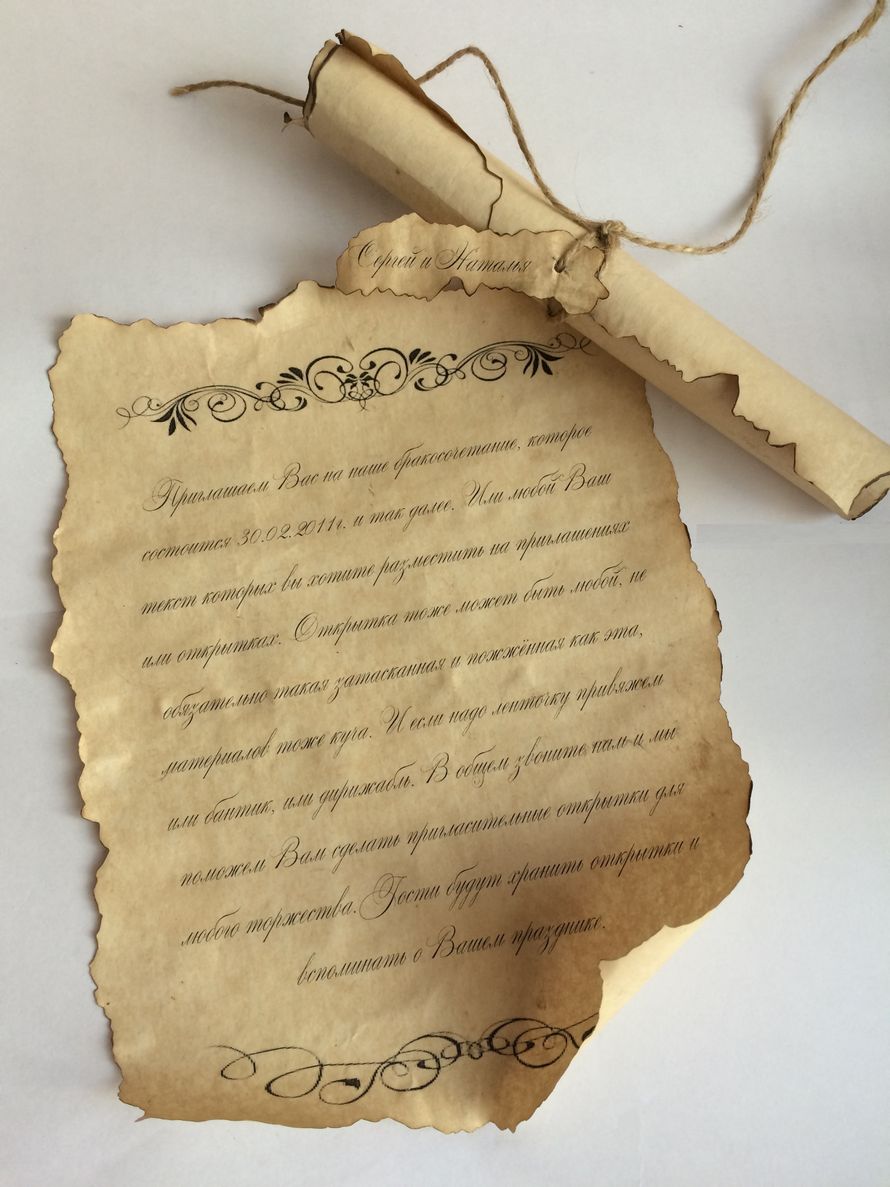 Сергей и Наталья
Приглашаем Вас на наше бракосочетание, которое
состоится 30.02.2011г. и так далее. Или любой Ваш
текст которых вы хотите разместить на приглашениях
или открытках. Открытка тоже может быть любой, не
обязательно такая затасканная и пожжённая как эта,
материалов тоже куча. И если надо ленточку привяжем
или бантик, или дирижабль. В общем звоните нам и мы
поможем Вам сделать пригласительные открытки для
любого торжества. Гости будут хранить открытки и
вспоминать о Вашем празднике.